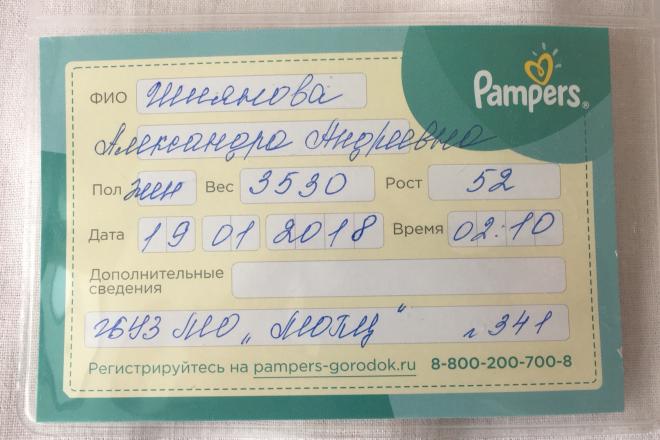 Pampers®
ФИО Шиянова
Александра Андреевна
Пол жен Вес 3530 Рост 52
Дата 19 01 2018 Время 02:10
Дополнительные
сведения
ГБУЗ МО „МОПЦ“ 341
Регистрируйтесь на pampers-gorodok.ru 8-800-200-700-8